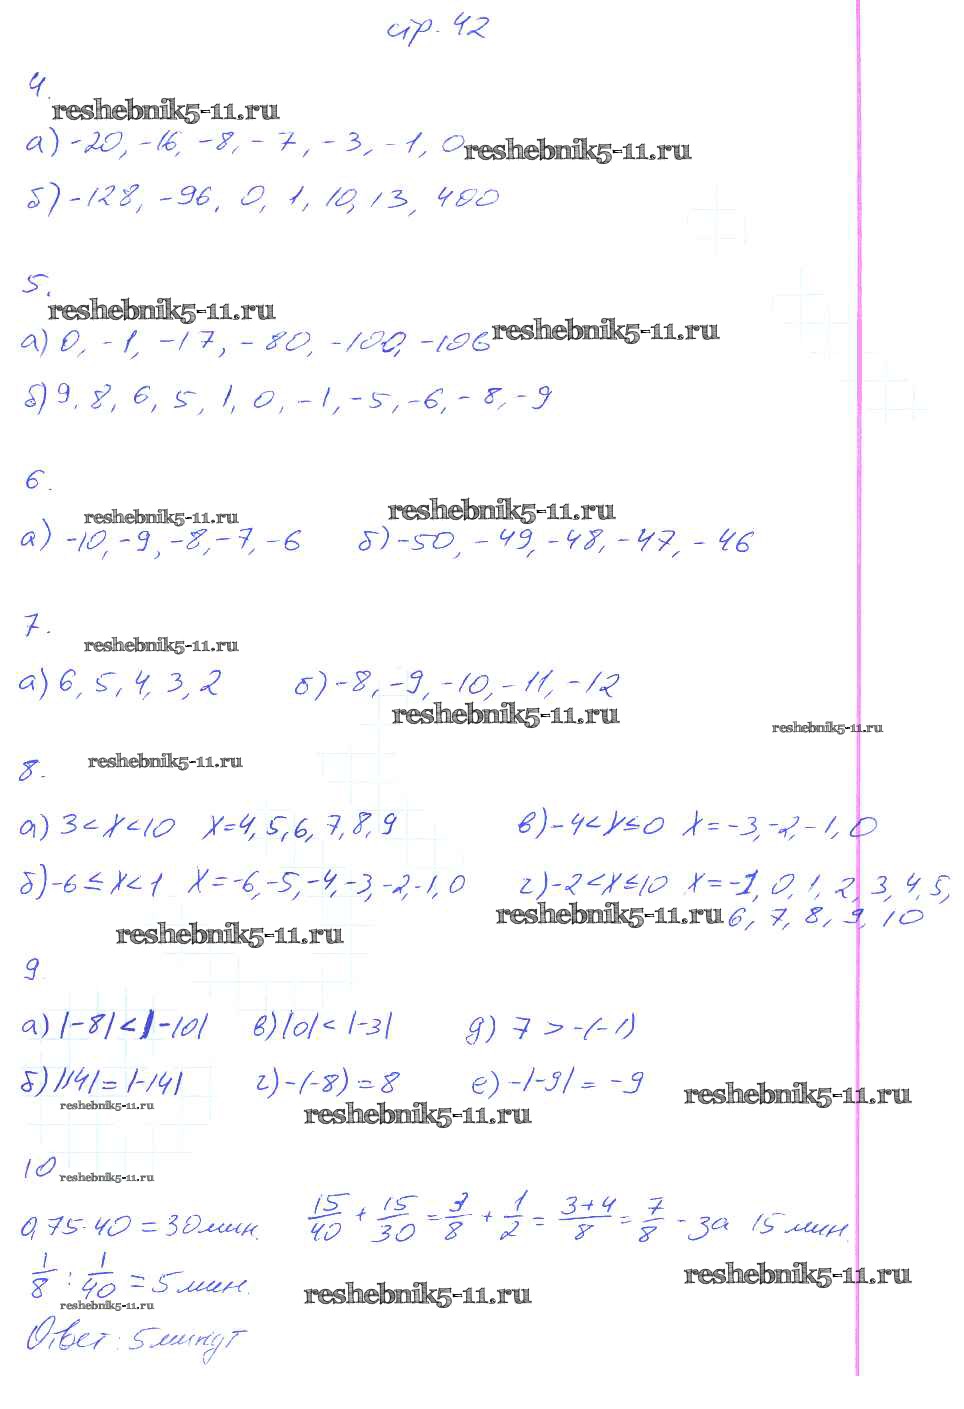 стр. 42
4.
reshebnik5-11.ru
а) -20, -16, -8, -7, -3, -1, 0 reshebnik5-11.ru
б) -128, -96, 0, 1, 10, 13, 400
5.
reshebnik5-11.ru
а) 0, -1, -17, -80, -100, -106 reshebnik5-11.ru
б) 9, 8, 6, 5, 1, 0, -1, -5, -6, -8, -9
6.
reshebnik5-11.ru reshebnik5-11.ru
а) -10, -9, -8, -7, -6 б) -50, -49, -48, -47, -46
7.
reshebnik5-11.ru
а) 6, 5, 4, 3, 2 б) -8, -9, -10, -11, -12
reshebnik5-11.ru
reshebnik5-11.ru
8. reshebnik5-11.ru
а) 3<x<10 x=4, 5, 6, 7, 8, 9 в) -4<x≤0 x=-3, -2, -1, 0
б) -6≤x<1 x=-6, -5, -4, -3, -2, -1, 0 г) -2<x≤10 x=-1, 0, 1, 2, 3, 4, 5,
reshebnik5-11.ru 6, 7, 8, 9, 10
reshebnik5-11.ru
9.
а) |-8|<|-10| в) |0|<|-3| д) 7 > -(-1)
б) |14|=|-14| г) -(-8)=8 е) -|-9|=-9
reshebnik5-11.ru reshebnik5-11.ru reshebnik5-11.ru
10 reshebnik5-11.ru
0,75·40=30 мин. 15/40 + 15/30 = 3/8 + 1/2 = 3+4/8 = 7/8 - за 15 мин.
1/8 : 1/40 = 5 мин. reshebnik5-11.ru
reshebnik5-11.ru reshebnik5-11.ru
Ответ: 5 минут